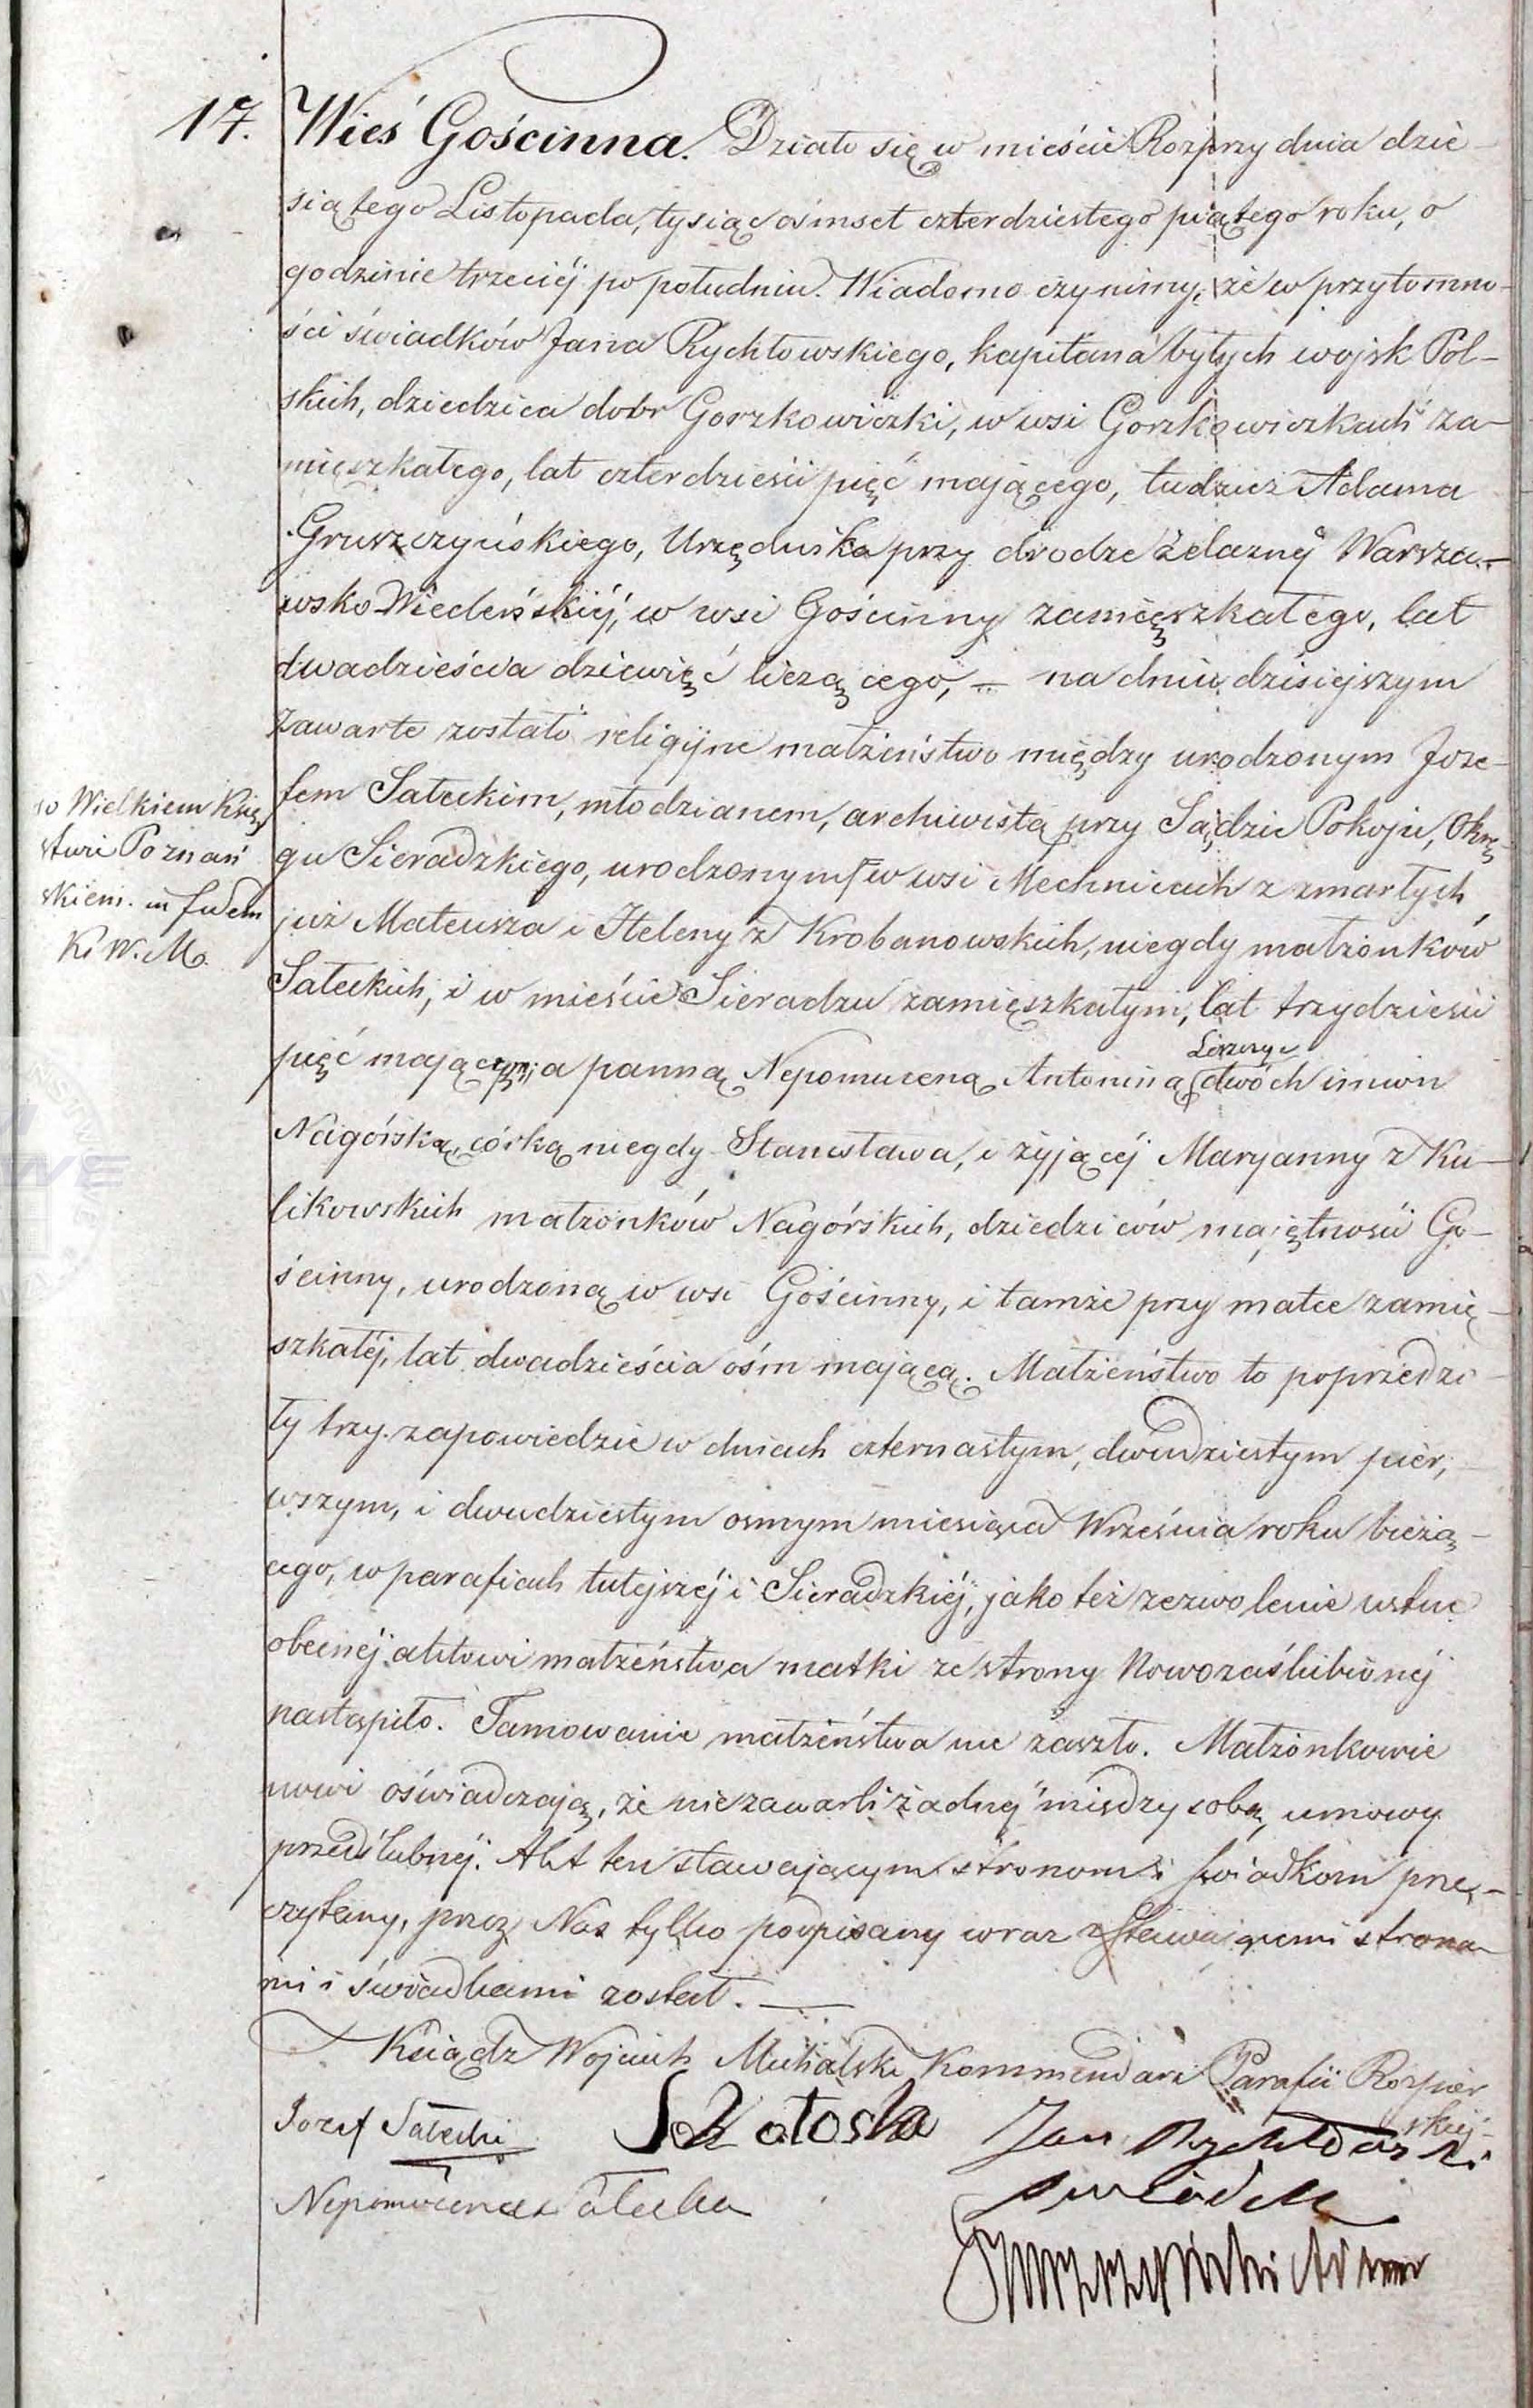 17. Wieś Gościnna. Działo się w mieście Rozprzy dnia dzie-
siątego Listopada, tysiąc ośmset czterdziestego piątego roku, o
godzinie trzeciéj po południu. Wiadomo czynimy, że w przytomno-
ści świadków Jana Rychłowskiego, kapitana byłych wojsk Pol-
skich, dziedzica dobr Gorzkowiczki, w wsi Gorzkowiczkach za-
mięszkałego, lat czterdzieści pięć mającego, tudzież Adama
Gruszczyńskiego, Urzędnika przy drodze żelaznéj Warsza-
wsko Wiedeńskiéj, w wsi Gościnny zamięszkałego, lat
dwadzieścia dziewięć liczącego, — na dniu dzisiejszym
zawarte zostało religijne małżeństwo między urodzonym Joze-
fem Sałeckim, młodzianem, archiwistą przy Sądzie Pokoju, Okrę-
gu Sieradzkiego, urodzonym w wsi Mechnicach z zmarłych
już Mateusza i Heleny z Krobanowskich, niegdy małżonków
Sałeckich, i w mieście Sieradzu zamięszkałym, lat trzydzieści
pięć mającym; a panną Nepomuceną Antoniną dwóch imion
Nagórską, córką niegdy Stanisława, i żyjącéj Maryanny z Ku-
likowskich małżonków Nagórskich, dziedziców majętności Go-
ścinny, urodzoną w wsi Gościnny, i tamże przy matce zamię-
szkałéj, lat dwadzieścia ośm mającą. Małżeństwo to poprzedzi-
ły trzy zapowiedzie w dniach czternastym, dwudziestym pier-
wszym, i dwudziestym osmym miesiąca Września roku bieżą-
cego, w parafiach tutejszéj i Sieradzkiéj, jako też zezwolenie ustne
obecnéj aktowi małżeństwa matki ze strony Nowozaślubionéj
nastąpiło. Tamowanie małżeństwa nie zaszło. Małżonkowie
nowi oświadczają, że nie zawarli żadnéj między sobą umowy
przedślubnéj. Akt ten stawającym stronom i świadkom prze-
czytany, przez Nas tylko podpisany wraz z stawającemi strona-
mi i świadkami został. —
w Wielkiem Księ
stwie Poznań
skiem.
K. W. M.
Ksiądz Wojciech Michalski Kommendarz Parafii Rozpier
skiej
Jozef Sałecki
Jan Rychłowski
świadek
Nepomucena Sałecka
Gruszczyński Adam